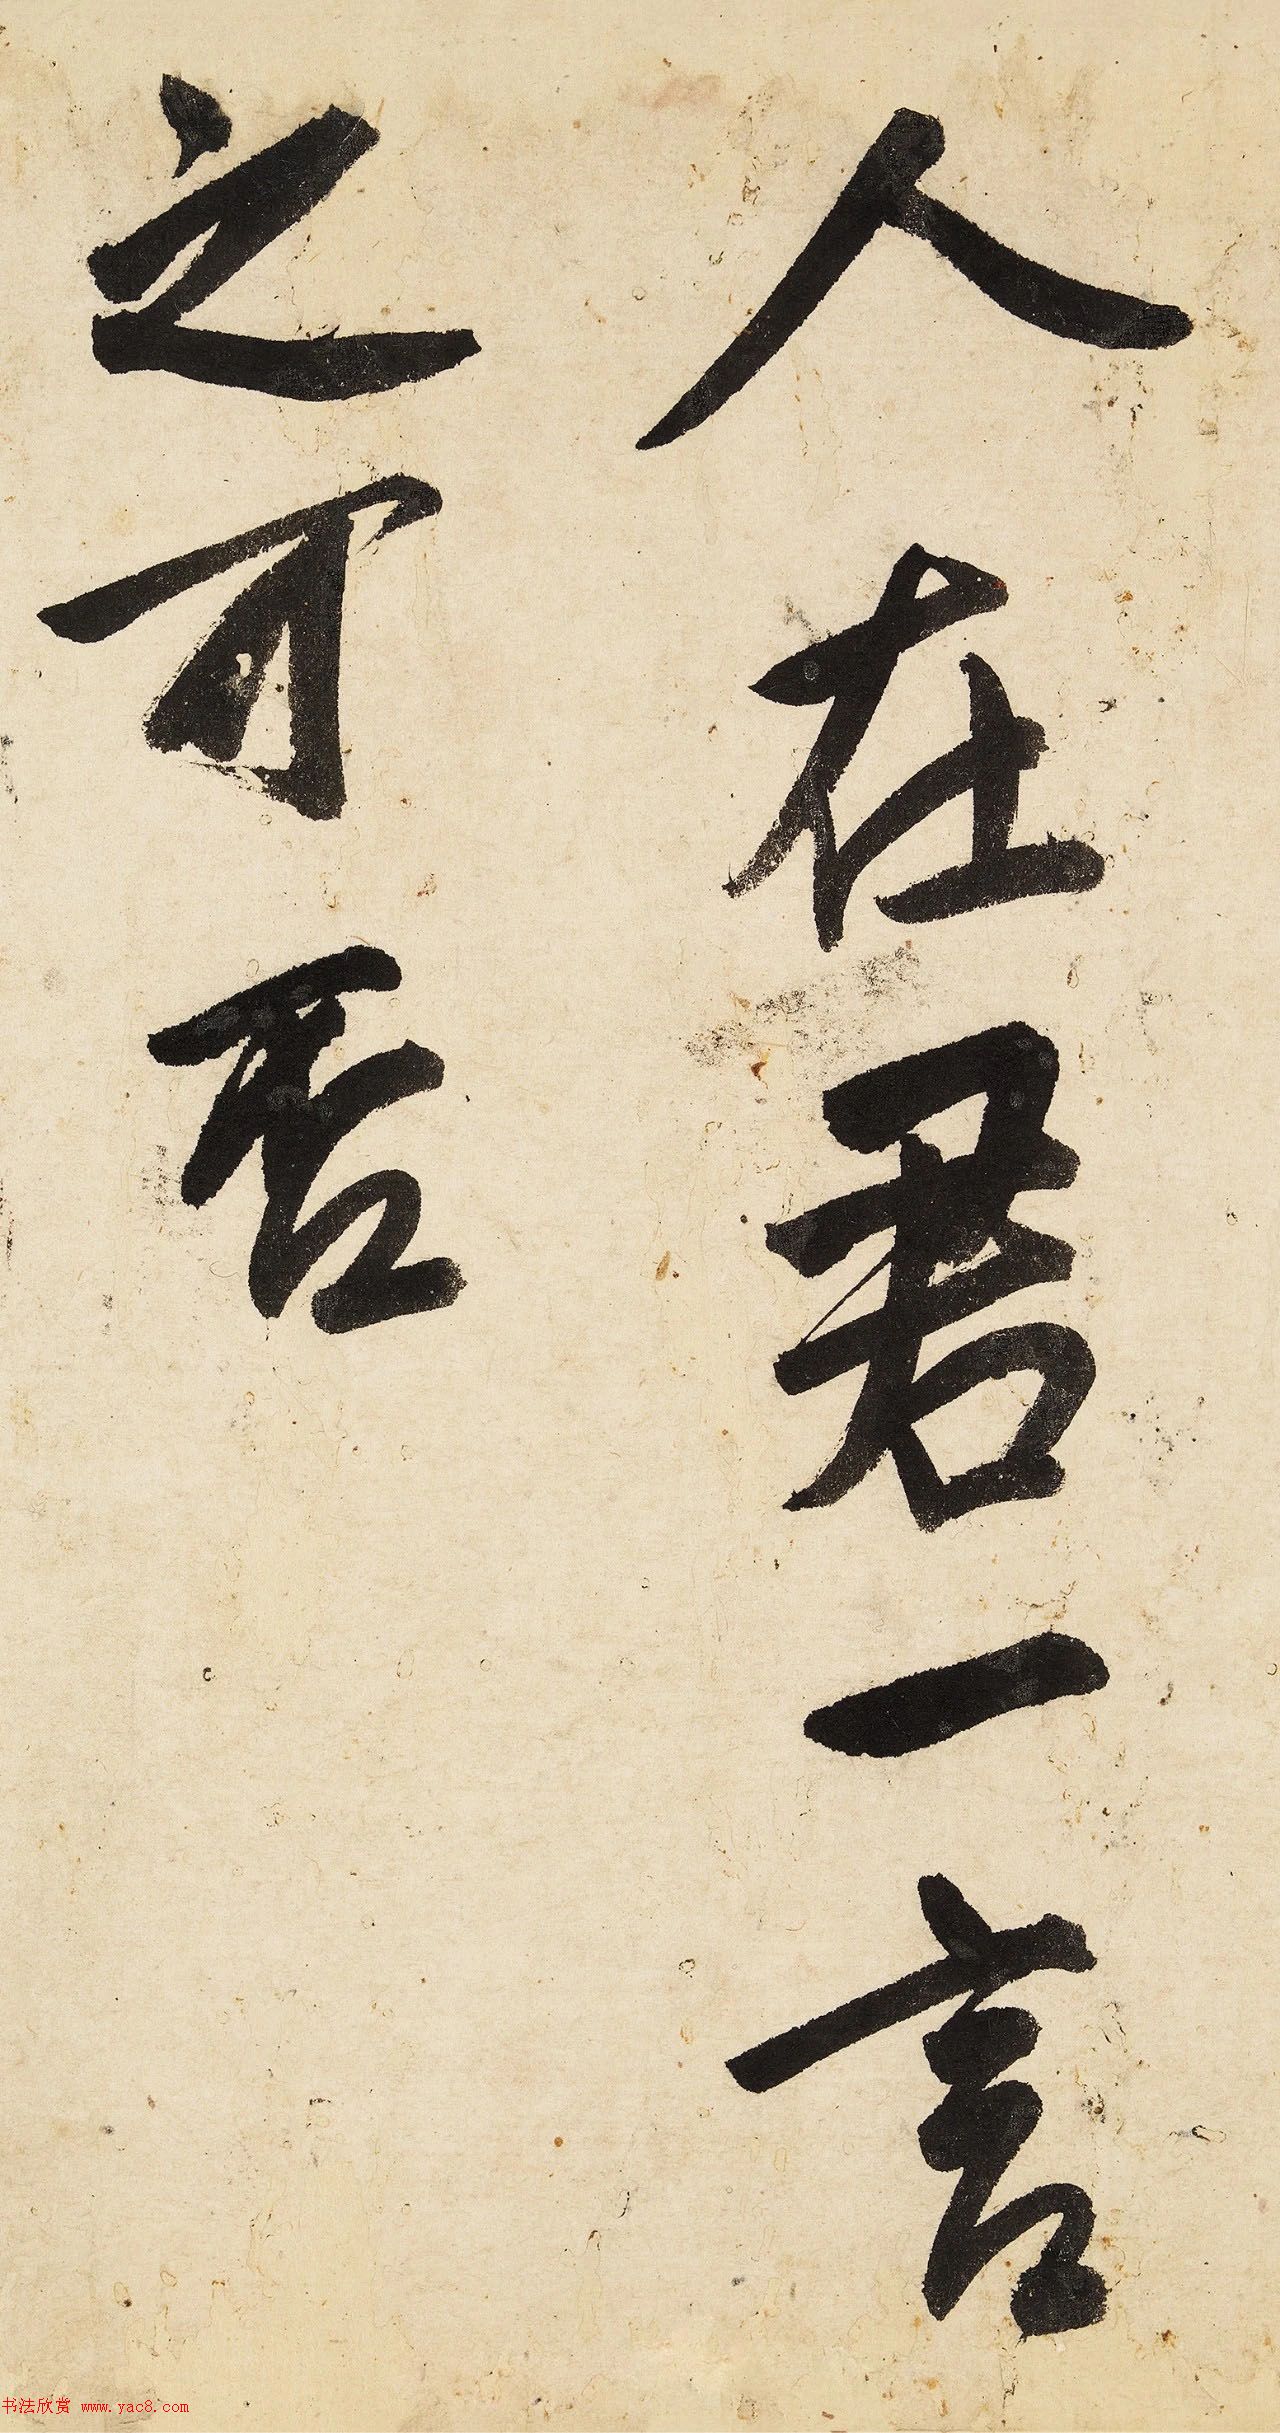 人在君一言
之可否
书法欣赏 www.yac8.com